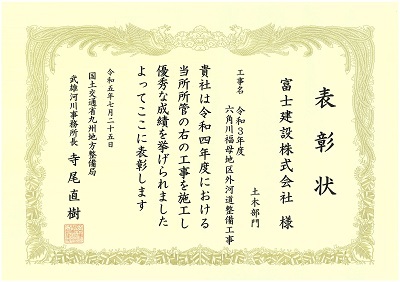 表彰状
富士建設株式会社 様
土木部門
工事名 令和3年度
六角川福母地区外河道整備工事
貴社は令和四年度における
当所所管の右の工事を施工し
優秀な成績を挙げられました
よってここに表彰します
令和五年七月二十五日
国土交通省九州地方整備局
武雄河川事務所長 寺尾直樹